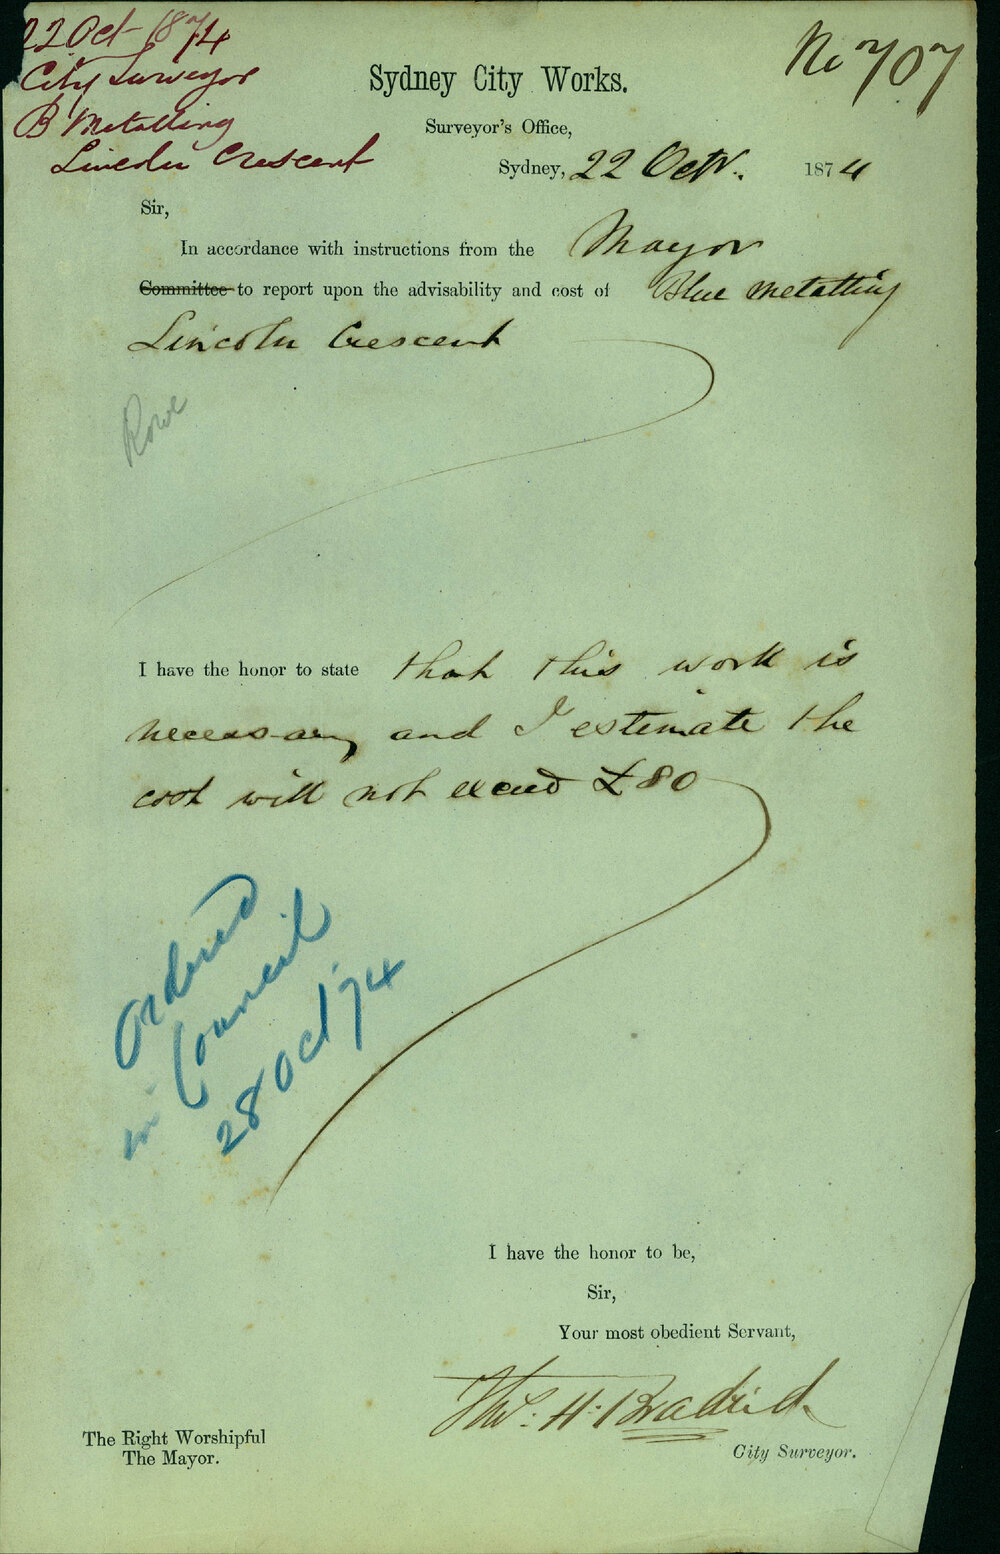 22 Oct 1874
City Surveyor
B Metalling
Lincoln Crescent
No 707
Sydney City Works.
Surveyor's Office,
Sydney, 22 Octr. 1874
Sir,
In accordance with instructions from the Mayor
Committee to report upon the advisability and cost of Blue metalling
Lincoln Crescent
Rowe
I have the honor to state that this work is
necessary and I estimate the
cost will not exceed £80
Ordered
in Council
28 Oct '74
I have the honor to be,
Sir,
Your most obedient Servant,
Thos. H. Bradridge
City Surveyor.
The Right Worshipful
The Mayor.